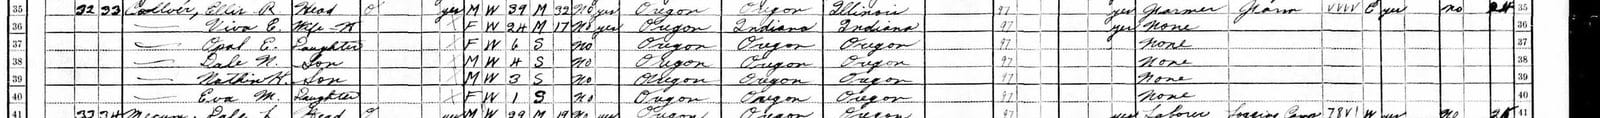 35 32 33 Collver, Ellis R. Head O yes M W 39 M 32 No yes Oregon Oregon Illinois 97 yes Farmer Farm VVVV E yes no 35
36 Viva E. Wife-H F W 24 M 17 No yes Oregon Indiana Indiana 97 yes None 36
37 — Opal E. Daughter F W 6 S No Oregon Oregon Oregon 97 None 37
38 — Dale N. Son M W 4 S No Oregon Oregon Oregon 97 None 38
39 — Nathin H. Son M W 3 S No Oregon Oregon Oregon 97 None 39
40 — Eva M. Daughter F W 1 S No Oregon Oregon Oregon 97 None 40
41 33 34 Head yes M W 29 M 19 No yes Oregon Oregon Oregon 97 yes Laborer Logging Camp 78V1 W yes No 41